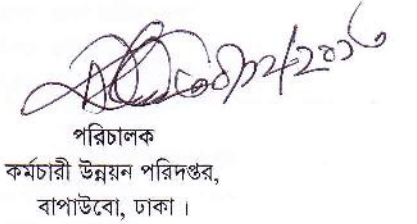 পরিচালক
কর্মচারী উন্নয়ন পরিদপ্তর,
বাপাউবো, ঢাকা ।